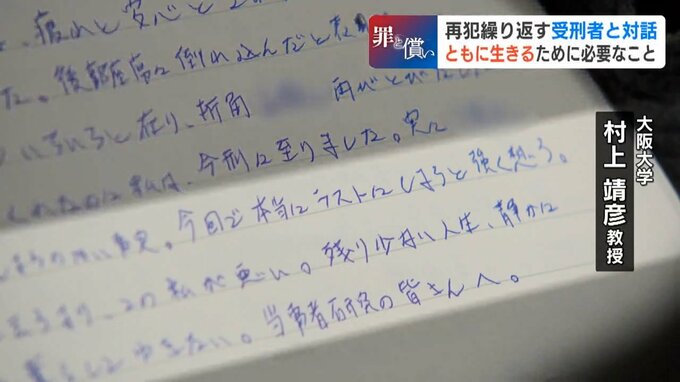 再犯繰り返す受刑者と対話
ともに生きるために必要なこと
罪と償い
大阪大学
村上 靖彦 教授
、疲れと安心と
た。後部座席に倒れ込んだと
いろいろと在り、折角
私は、今刑に至りました。実に
事実。今回で本当にラストにしようと強く想う。
この私が悪い。残り少ない人生、静かに
ゆきたい。当事者研究の皆さんへ。